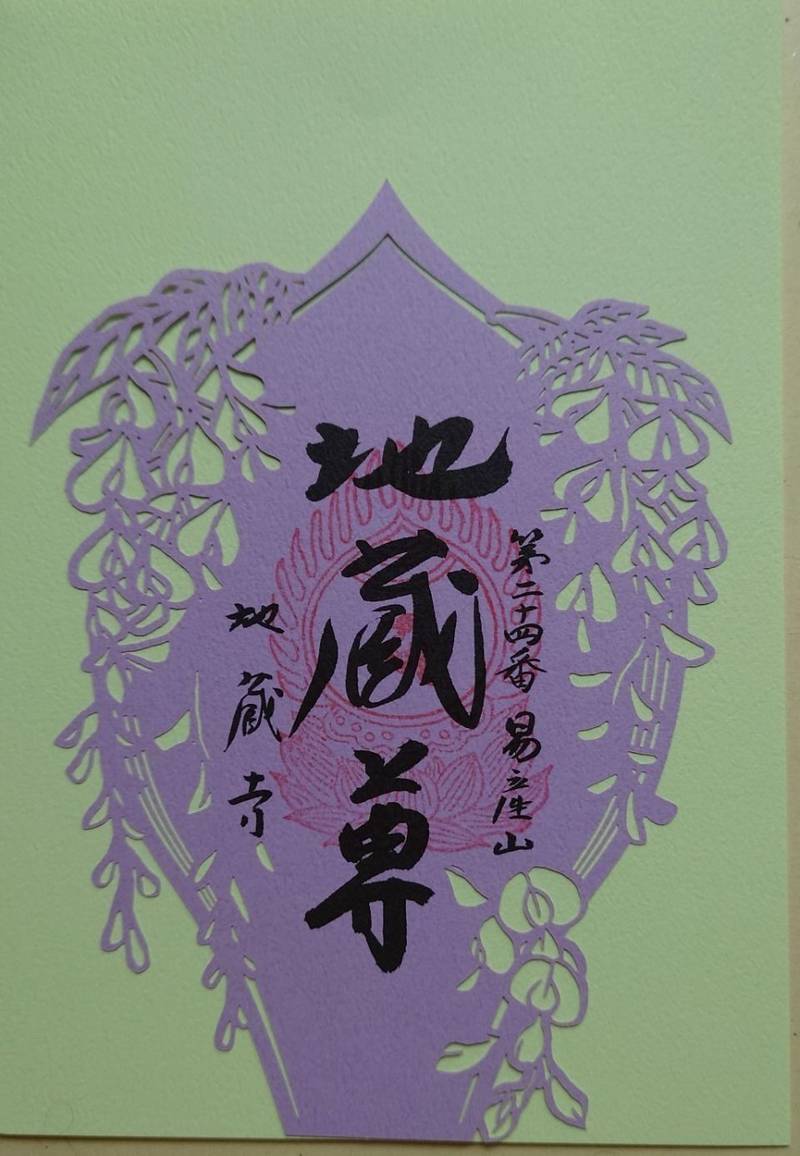 第二十四番 易産山
地蔵尊
地蔵寺